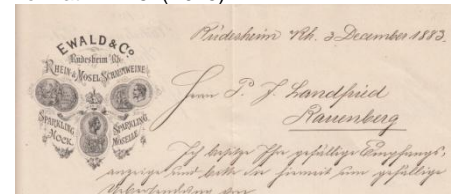 EWALD & Co.
Rüdesheim a/Rh.
RHEIN & MOSEL SCHAUMWEINE
SPARKLING HOCK.
SPARKLING MOSELLE
Rüdesheim a/Rh. 3 December 1883.
Herrn P. J. Landfried
Rauenberg
Ich besitze Ihre gefällige Empfangs-
anzeige und bitte Sie hiermit um gefällige
Uebersendung von